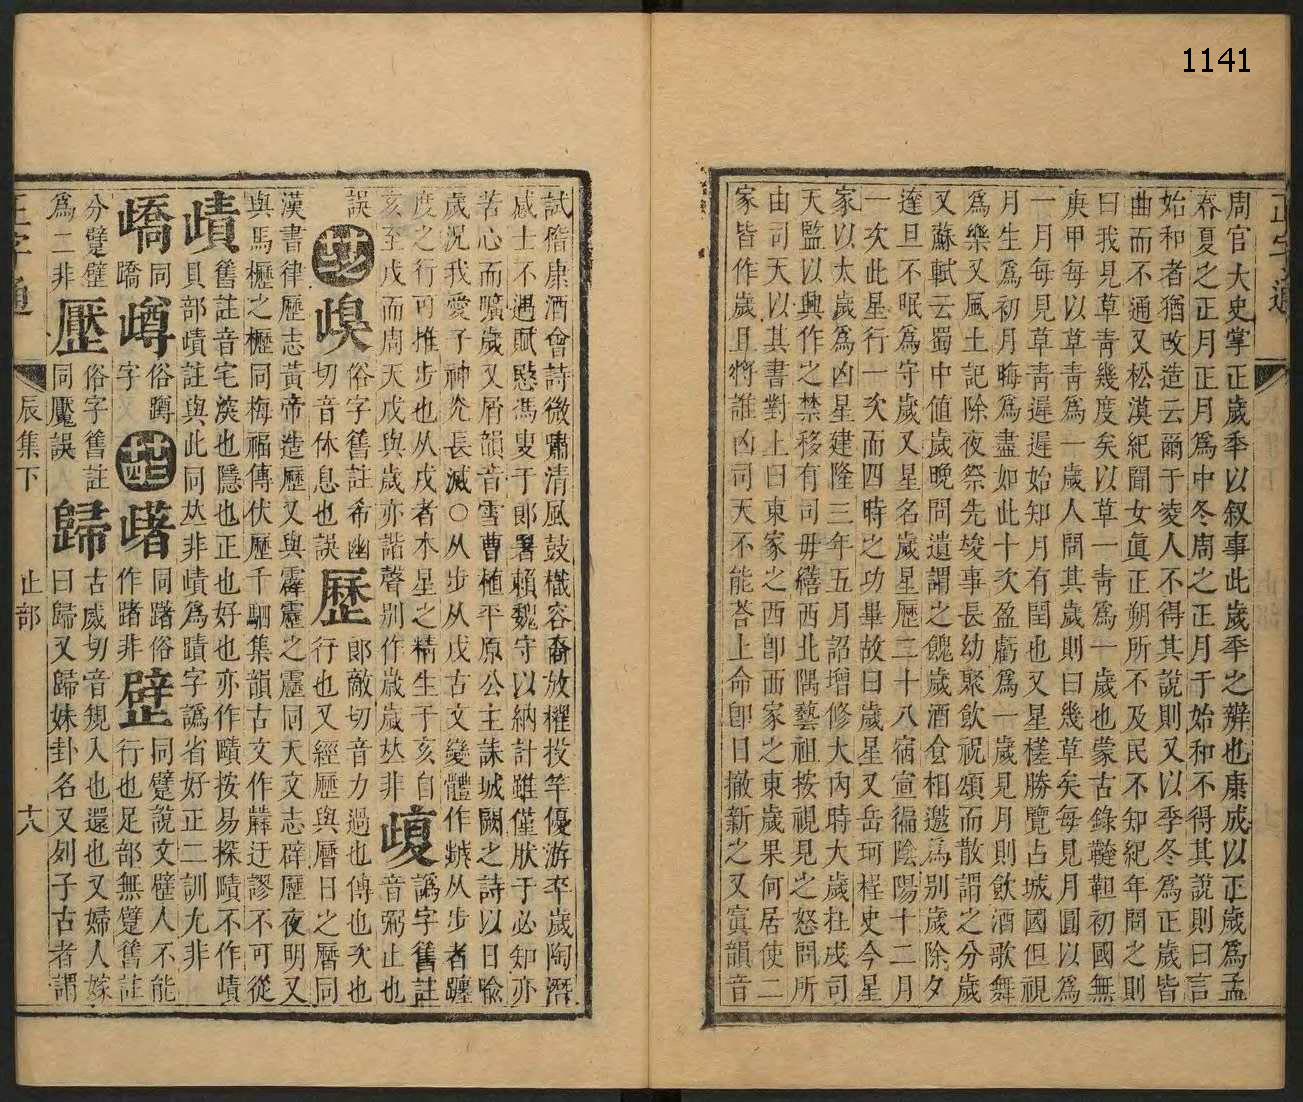 1141
周官大史掌正歲季以叙事此歲季之辨也康成以正歲爲孟
春夏之正月正月爲中冬周之正月于始和不得其說則曰言
始和者猶改造云爾于凌人不得其說則又以季冬爲正歲皆
曲而不通又松漠紀聞女眞正朔所不及民不知紀年問之則
曰我見草靑幾度矣以草一靑爲一歲也蒙古錄韃靼初國無
庚甲每以草靑爲一歲人問其歲則曰幾草矣每見月圓以爲
一月每見草靑遲遲始知月有閏也又星槎勝覽占城國但視
月生爲初月晦爲盡如此十次盈虧爲一歲見月則飲酒歌舞
爲樂又風土記除夜祭先竣事長幼聚飲祝頌而散謂之分歲
又蘇軾云蜀中値歲晚問遺謂之餽歲酒食相邀爲別歲除夕
達旦不眠爲守歲又星名歲星歷二十八宿宣徧陰陽十二月
一次此星行一次而四時之功畢故曰歲星又岳珂桯史今星
家以太歲爲凶星建隆三年五月詔增修大內時大歲在戌司
天監以興作之禁移有司毋繕西北隅藝祖按視見之怒問所
由司天以其書對上曰東家之西卽西家之東歲果何居使二
家皆作歲且將誰凶司天不能荅上命卽日撤新之又寘韻音
試脩康酒會詩微嘯淸風鼓檝容裔放櫂投竿優游卒歲陶潛
感士不遇賦愍馮叟于郎署賴魏守以納計雖僅肰于必知亦
苦心而曠歲又屑韻音雪曹植平原公主誄城闕之詩以日喩
歲況我愛子神光長滅○从步从戌古文變體作𣦩从步者躔
度之行可推步也从戌者木星之精生于亥自
亥至戌而周天戌與歲亦諧聲別作歳嵗𠀤非 㱕 譌字舊註
音弼止也
誤 㱓 俗字舊註希幽
切音休息也誤 歷 郎敵切音力過也傳也次也
行也又經歷與曆日之曆同
漢書律歷志黃帝造歷又與霹靂之靂同天文志辟歷夜明又
與馬櫪之櫪同梅福傳伏歷千駟集韻古文作𤯌迂謬不可從
㱴 舊註音宅漠也隱也正也好也亦作賾按易探賾不作㱴
貝部㱴註與此同𠀤非㱴爲賾字譌省好正二訓尤非
𣦯 同
蹻 𣦼 俗蹲
字 㱙 同躇俗
作踷非 𨆛 同躄說文躄人不能
行也足部無躄舊註
分躄壁
爲二非 𣦰 俗字舊註
同魘誤 歸 古威切音䂓入也還也又婦人嫁
曰歸又歸妹卦名又列子古者謂
正字通 辰集下 止部 十八